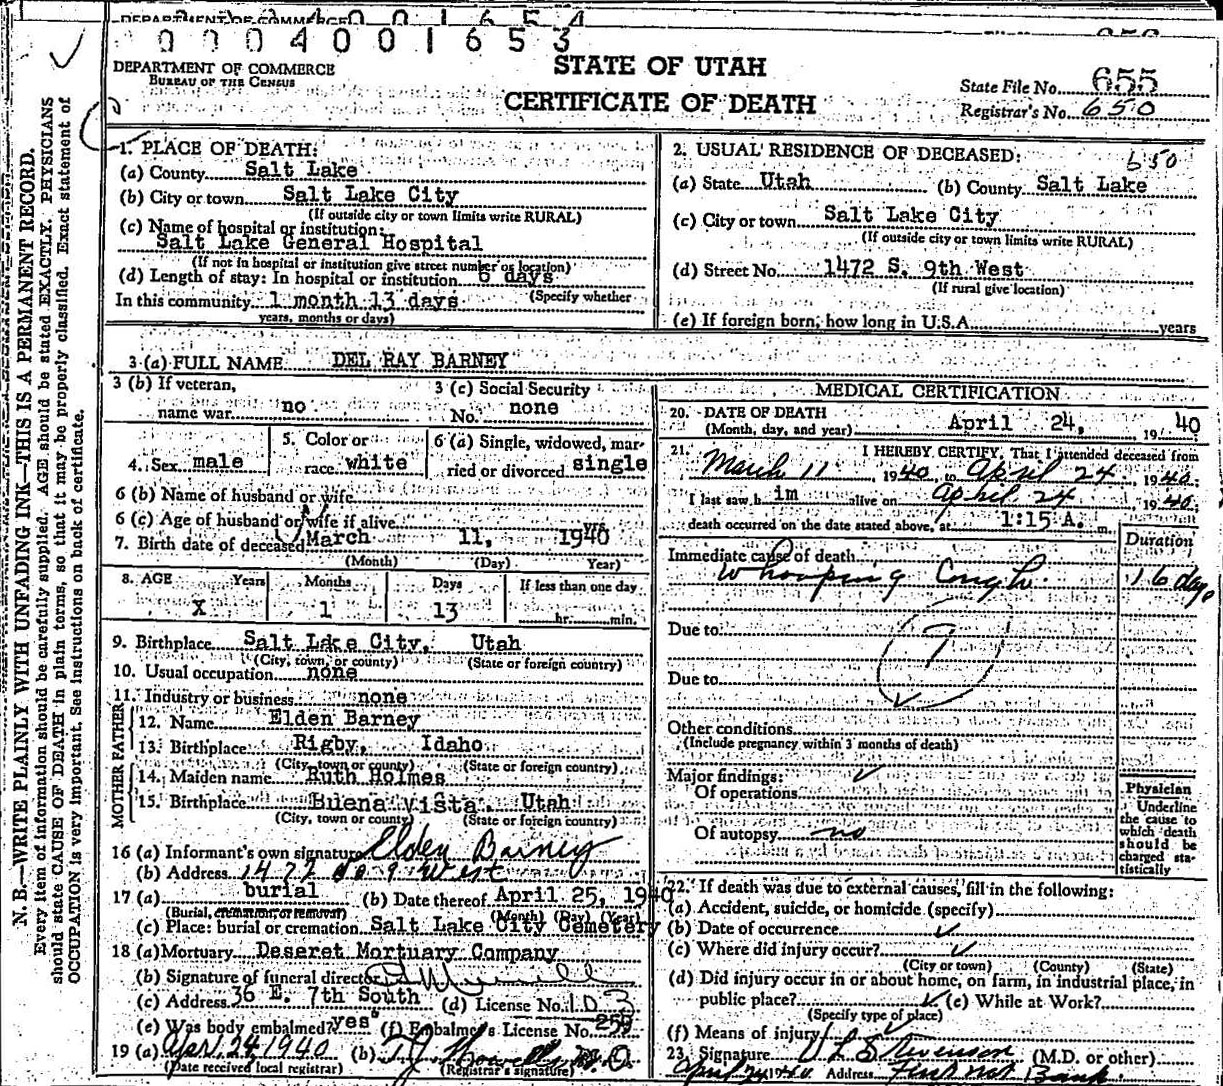 DEPARTMENT OF COMMERCE
0004001653
DEPARTMENT OF COMMERCE
BUREAU OF THE CENSUS
STATE OF UTAH
CERTIFICATE OF DEATH
State File No. 655
Registrar's No. 650
N. B.—WRITE PLAINLY WITH UNFADING INK—THIS IS A PERMANENT RECORD.
Every item of information should be carefully supplied. AGE should be stated EXACTLY. PHYSICIANS
should state CAUSE OF DEATH in plain terms, so that it may be properly classified. Exact statement of
OCCUPATION is very important. See instructions on back of certificate.
1. PLACE OF DEATH:
(a) County Salt Lake
(b) City or town Salt Lake City
(If outside city or town limits write RURAL)
(c) Name of hospital or institution:
Salt Lake General Hospital
(If not in hospital or institution give street number or location)
(d) Length of stay: In hospital or institution 6 days
(Specify whether
In this community 1 month 13 days
years, months or days)
2. USUAL RESIDENCE OF DECEASED: 650
(a) State Utah (b) County Salt Lake
(c) City or town Salt Lake City
(If outside city or town limits write RURAL)
(d) Street No. 1472 S. 9th West
(If rural give location)
(e) If foreign born, how long in U.S.A. years
3 (a) FULL NAME DEL RAY BARNEY
3 (b) If veteran,
name war no
3 (c) Social Security
No. none
4. Sex male
5. Color or
race white
6 (a) Single, widowed, mar-
ried or divorced single
6 (b) Name of husband or wife
6 (c) Age of husband or wife if alive yrs.
7. Birth date of deceased March 11, 1940
(Month) (Day) Year)
8. AGE Years Months Days If less than one day
X 1 13 hr. min.
9. Birthplace Salt Lake City, Utah
(City, town, or county) (State or foreign country)
10. Usual occupation none
11. Industry or business none
FATHER
12. Name Elden Barney
13. Birthplace Rigby, Idaho
(City, town or county) (State or foreign country)
MOTHER
14. Maiden name Ruth Holmes
15. Birthplace Buena Vista Utah
(City, town or county) (State or foreign country)
16 (a) Informant's own signature Elden Barney
(b) Address 1472 So 9 West
17 (a) burial (b) Date thereof April 25, 1940
(Burial, cremation, or removal) (Month) (Day) (Year)
(c) Place: burial or cremation Salt Lake City Cemetery
18 (a) Mortuary Deseret Mortuary Company
(b) Signature of funeral director
(c) Address 36 E. 7th South (d) License No. 103
(e) Was body embalmed? yes (f) Embalmer's License No.
19 (a) Apr. 24, 1940 (b) M.D.
(Date received local registrar) (Registrar's signature)
MEDICAL CERTIFICATION
20. DATE OF DEATH
(Month, day, and year) April 24, 19 40
21. I HEREBY CERTIFY, That I attended deceased from
March 11, 1940, to April 24, 1940;
I last saw h im alive on April 24 1940;
death occurred on the date stated above, at 1:15 A. m.
Duration
Immediate cause of death
Whooping Cough 16 days
Due to
9
Due to
Other conditions
(Include pregnancy within 3 months of death)
Major findings:
Of operations
Of autopsy no
Physician
Underline
the cause to
which death
should be
charged sta-
tistically
22. If death was due to external causes, fill in the following:
(a) Accident, suicide, or homicide (specify)
(b) Date of occurrence
(c) Where did injury occur?
(City or town) (County) (State)
(d) Did injury occur in or about home, on farm, in industrial place, in
public place? (e) While at Work?
(Specify type of place)
(f) Means of injury
23. Signature L E Stevenson (M.D. or other)
April 24 1940 Address First Nat Bank